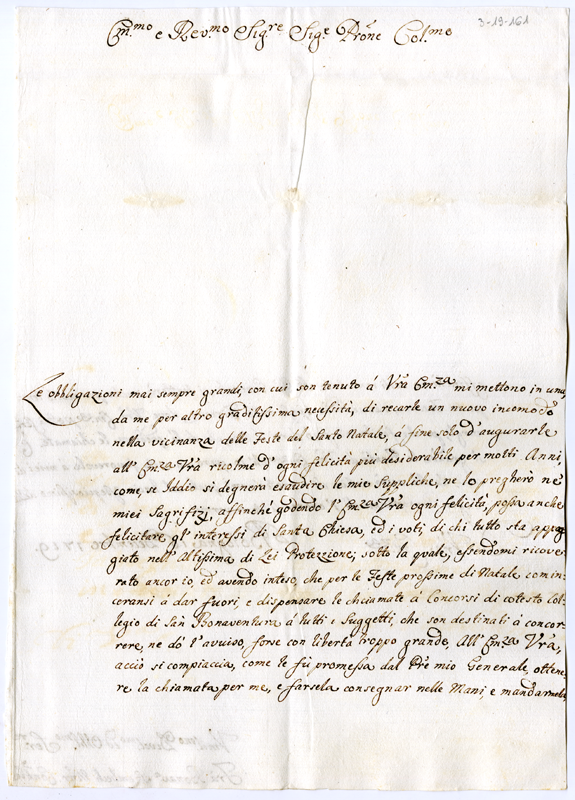 Em.mo e Rev.mo Sig.re Sig.e Prōne Col.mo
3-19-161
Le obbligazioni mai sempre grandi, con cui son tenuto á Vrā Em.za mi mettono in una,
da me per altro graditissima necessità, di recarle un nuovo incomodo
nella vicinanza delle Feste del Santo Natale, á fine solo d'augurarle
all' Em.za Vrā ricolme d'ogni felicità più desiderabile per molti Anni,
come, se Iddio si degnerà essaudire le mie Suppliche, ne lo pregherò ne'
miei Sagrifizj, affinchè godendo l'Em.za Vrā ogni felicità, possa anche
felicitare gl'interessi di Santa Chiesa, ed i voti, di chi tutto sta appog-
giato nell'Altissima di Lei Protezzione; sotto la quale, essendomi ricove-
rato ancor io, ed avendo inteso, che per le Feste prossime di Natale comin-
ceransi á dar fuori, e dispensare le chiamate á Concorsi di cotesto Col-
legio di San Bonaventura á tutti e Suggetti, che son destinati á concor-
rere, ne dó l'avuiso, forse con libertà troppo grande, All' Em.za Vrā,
acciò si compiaccia, come le fù promessa dal Prē mio Generale, ottene-
re la chiamata per me, e farsela consegnar nelle Mani, e mandarmela,